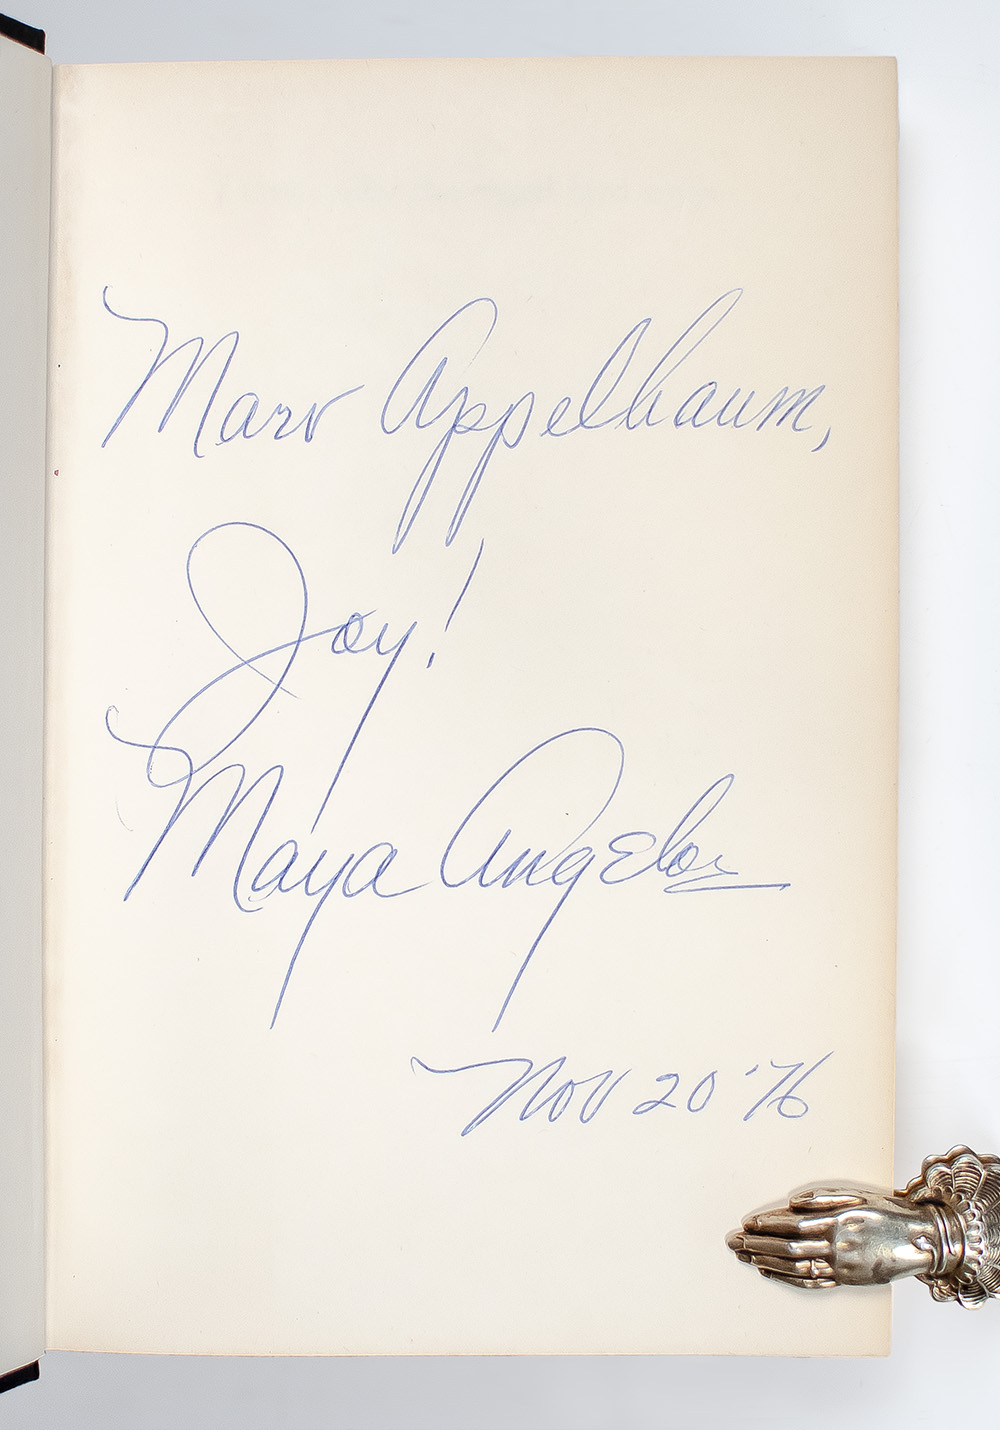 Marv Appelbaum,
Joy!
Maya Angelou
Nov 20 '76